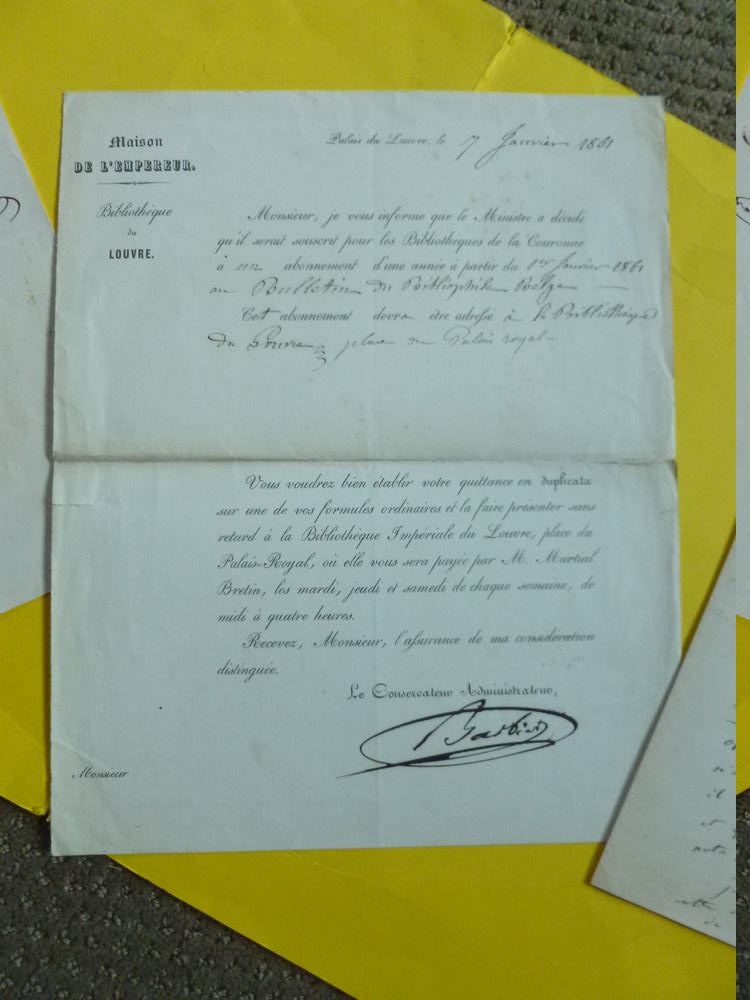 Maison
DE L'EMPEREUR.
Bibliothèque
du
LOUVRE.
Palais du Louvre, le 7 Janvier 1861
Monsieur, je vous informe que le Ministre a décidé
qu'il serait souscrit pour les Bibliothèques de la Couronne
à un abonnement d'une année à partir du 1er Janvier 1861
au Bulletin du Bibliophile Belge
Cet abonnement devra être adressé à la Bibliothèque
du Louvre, place du Palais royal
Vous voudrez bien établir votre quittance en duplicata
sur une de vos formules ordinaires et la faire présenter sans
retard à la Bibliothèque Impériale du Louvre, place du
Palais-Royal, où elle vous sera payée par M. Martial
Bretin, les mardi, jeudi et samedi de chaque semaine, de
midi à quatre heures.
Recevez, Monsieur, l'assurance de ma considération
distinguée.
Le Conservateur Administrateur,
Barbier
Monsieur
il
et